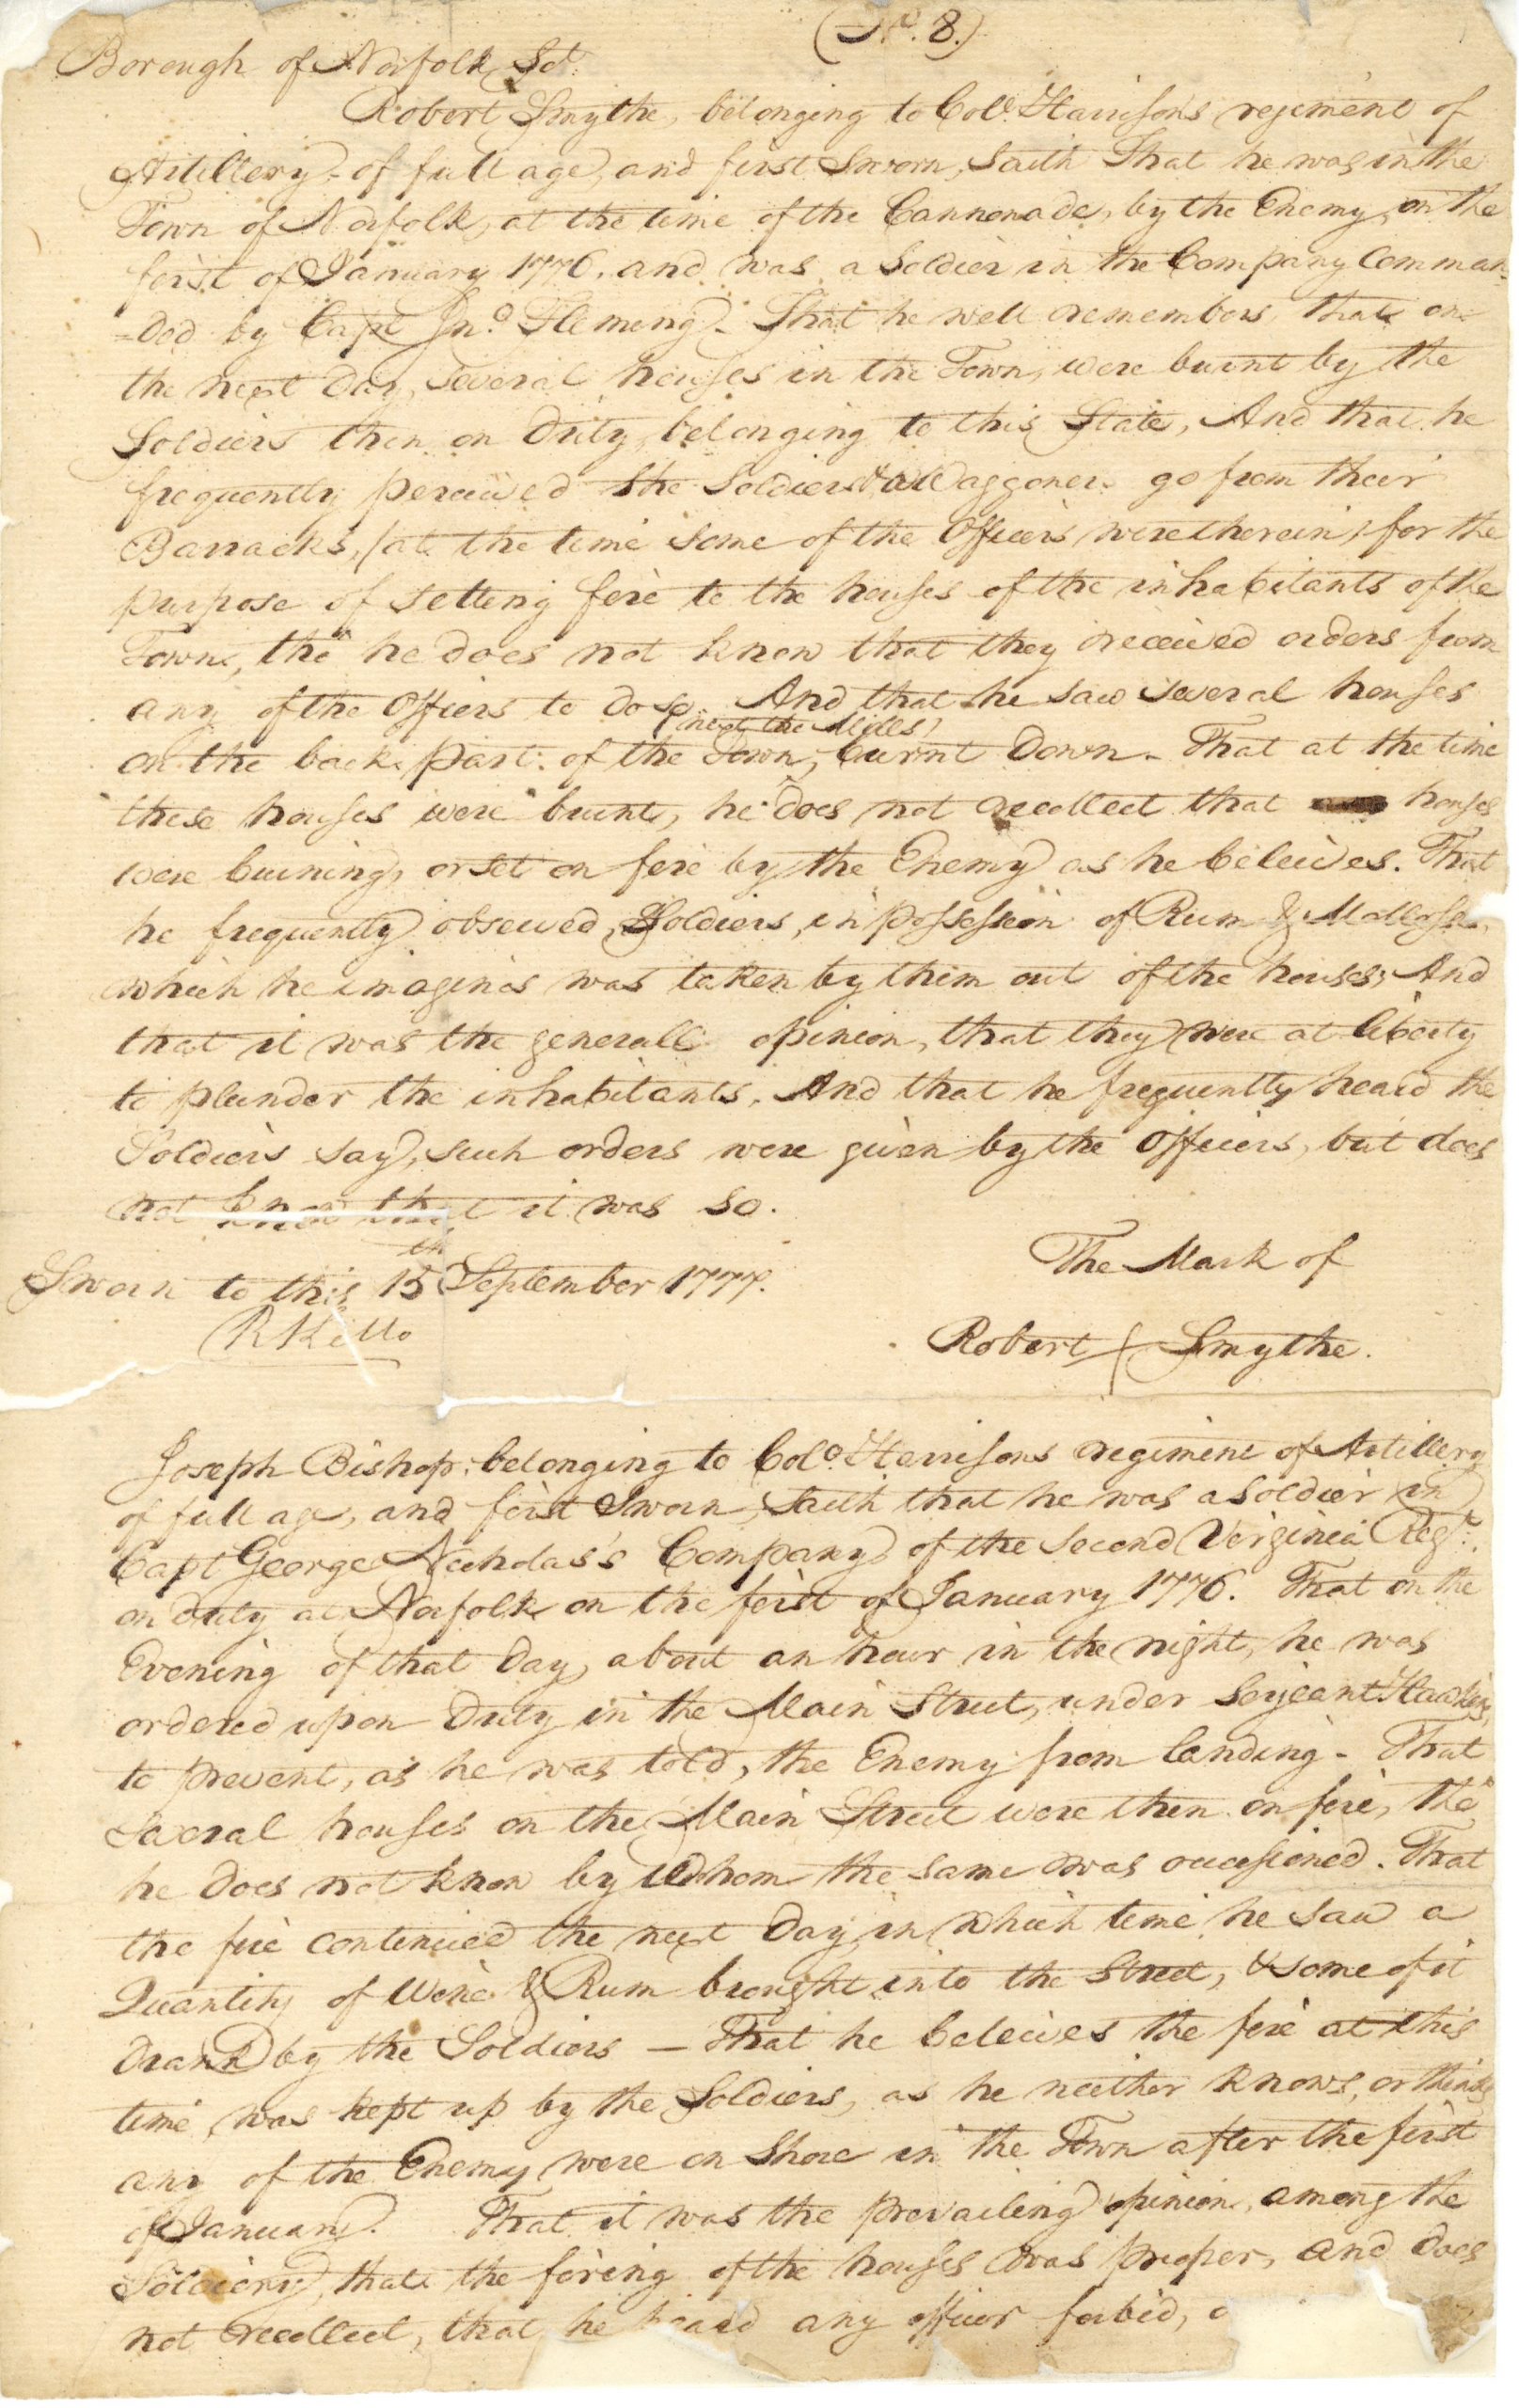 (No. 8.)
Borough of Norfolk Sct.
Robert Smythe, belonging to Colo. Harrison's regiment of
Artillery, of full age, and first Sworn, Saith That he was in the
Town of Norfolk, at the time of the Cannonade, by the Enemy, on the
first of January 1776. and was a Soldier in the Company Comman-
=ded by Capt Jno. Fleming. That he well remembers that on
the next Day, several houses in the Town, were burnt by the
Soldiers then on Duty, belonging to this State, And that he
frequently perceived the Soldiers & Waggoners go from their
Barracks, (at the time some of the Officers were therein) for the
purpose of setting fire to the houses of the inhabitants of the
Town, tho he does not know that they received orders from
any of the Officers to do so. And that he saw several houses
(next the Mills)
on the back part of the Town, burnt Down. That at the time
these houses were burnt, he does not recollect that houses
were burning, or set on fire by the Enemy as he beleives. That
he frequently observed, Soldiers, in possession of Rum & Mollasses,
which he imagines was taken by them out of the houses; And
that it was the generall opinion, that they were at liberty
to plunder the inhabitants. And that he frequently heard the
Soldiers say, such orders were given by the Officers, but does
not know that it was so.
Sworn to this 15th September 1777.
The Mark of
RKello
Robert Smythe.
Joseph Bishop, belonging to Colo. Harrisons regiment of Artillery
of full age, and first Sworn, Saith that he was a soldier in
Capt George Nicholas's Company of the second Virginia Regt.,
on duty at Norfolk on the first of January 1776. That on the
Evening of that Day, about an hour in the night, he was
ordered upon Duty in the Main Street, under Serjeant Hawkins,
to prevent, as he was told, the Enemy from landing - That
several houses on the Main Street were then on fire, tho
he does not know by Whom the same was occasioned. That
the fire continued the next Day, in which time he saw a
Quantity of Wine & Rum brought into the street, & some of it
Drank by the Soldiers — That he beleives the fire at this
time, was kept up by the Soldiers, as he neither knows, or thinks
any of the Enemy were on Shore in the Town after the first
of January. That it was the prevailing opinion, among the
Soldiery, that the fireing of the houses was proper, and does
not recollect, that he heard any officer forbid,